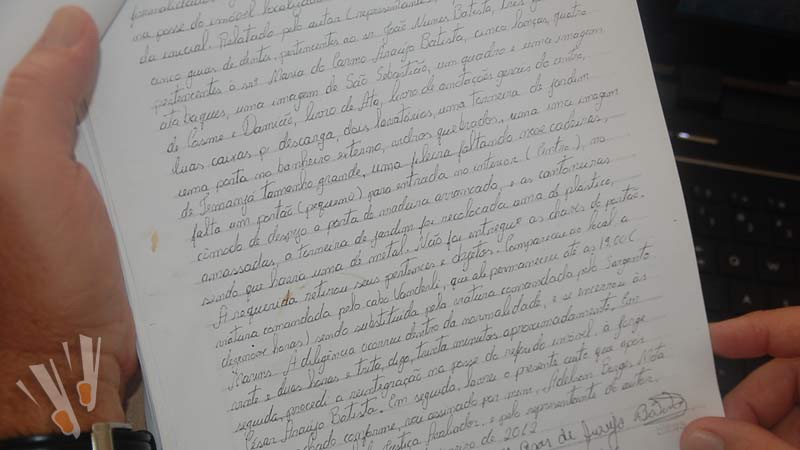 formalidades
na posse do imóvel localizado
da inicial. Relatado pelo autor (representante,
cinco guias de dentes, pertencentes ao sr. João Nunes Batista, três
pertencentes à srª Maria do Carmo Araújo Batista, cinco lanças, quatro
atabaques, uma imagem de São Sebastião, um quadro e uma imagem
de Cosme e Damião, livro de Ata, livro de anotações gerais do centro,
duas caixas p/ descarga, dois lavatórios, uma torneira de jardim
uma porta no banheiro externo, vidros quebrados, uma uma imagem
de Iemanjá tamanho grande, uma fileira faltando nove cadeiras,
falta um portão (pequeno) para entrada no interior (Centro), no
cômodo de despejo a porta de madeira arrancada, e as cantoneiras
amassadas, a torneira de jardim foi recolocada uma de plástico,
sendo que havia uma de metal. Não foi entregue as chaves do portão.
A requerida retirou seus pertences e objetos. Compareceu ao local a
viatura comandada pelo cabo Vanderli, que ali permaneceu até as 19:00
(dezenove horas) sendo substituída pela viatura comandada pelo Sargento
Marins. A diligência ocorreu dentro da normalidade, e se encerrou às
vinte e duas horas e trista, digo, trinta minutos aproximadamente. Em
seguida, procedi a reintegração na posse do referido imóvel à Jorge
César Araújo Batista. Em seguida, lavrei o presente auto que após
lido e achado conforme, vai assinado por mim, Adelson Borges Mota
Justiça Avaliador, e pelo representante do autor.
de 2012
Cesar de Araujo Batista